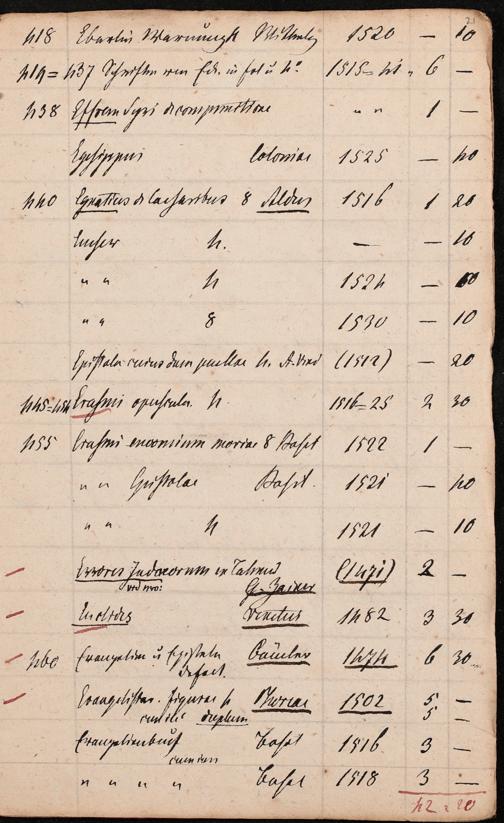 21
418 Eberlin Warnungk Wittenbg 1520 — 10
419=437 Schriften von Eck in fol u 4° 1515=41 6 —
438 Effrem Syri d compunctione " " 1 —
Egesippus Coloniae 1525 — 40
440 Egnatius d Caesaribus 8 Aldus 1516 1 20
Emser 4. — — 10
" " 4 1524 — 10
" " 8 1530 — 10
Epistola cuiusdam puellae 4. (1512) — 20
445=454 Erasmi opuscula 4. 1516=25 2 30
455 Erasmi encomium moriae 8 Basel 1522 1 —
" " Epistolae Basel. 1521 — 40
" " 4 1521 — 10
Errores Judaeorum ex Talmud (1471) 2 —
G. Zainer
Euclides Venetus 1482 3 30
460 Evangelien u Episteln Bämler 1474 6 30
defect.
Evangelistar. figurae 4 1502 5 —
duplum 5 —
Evangelienbuch Basel 1516 3 —
" " " " Basel 1518 3 —
42 = 20